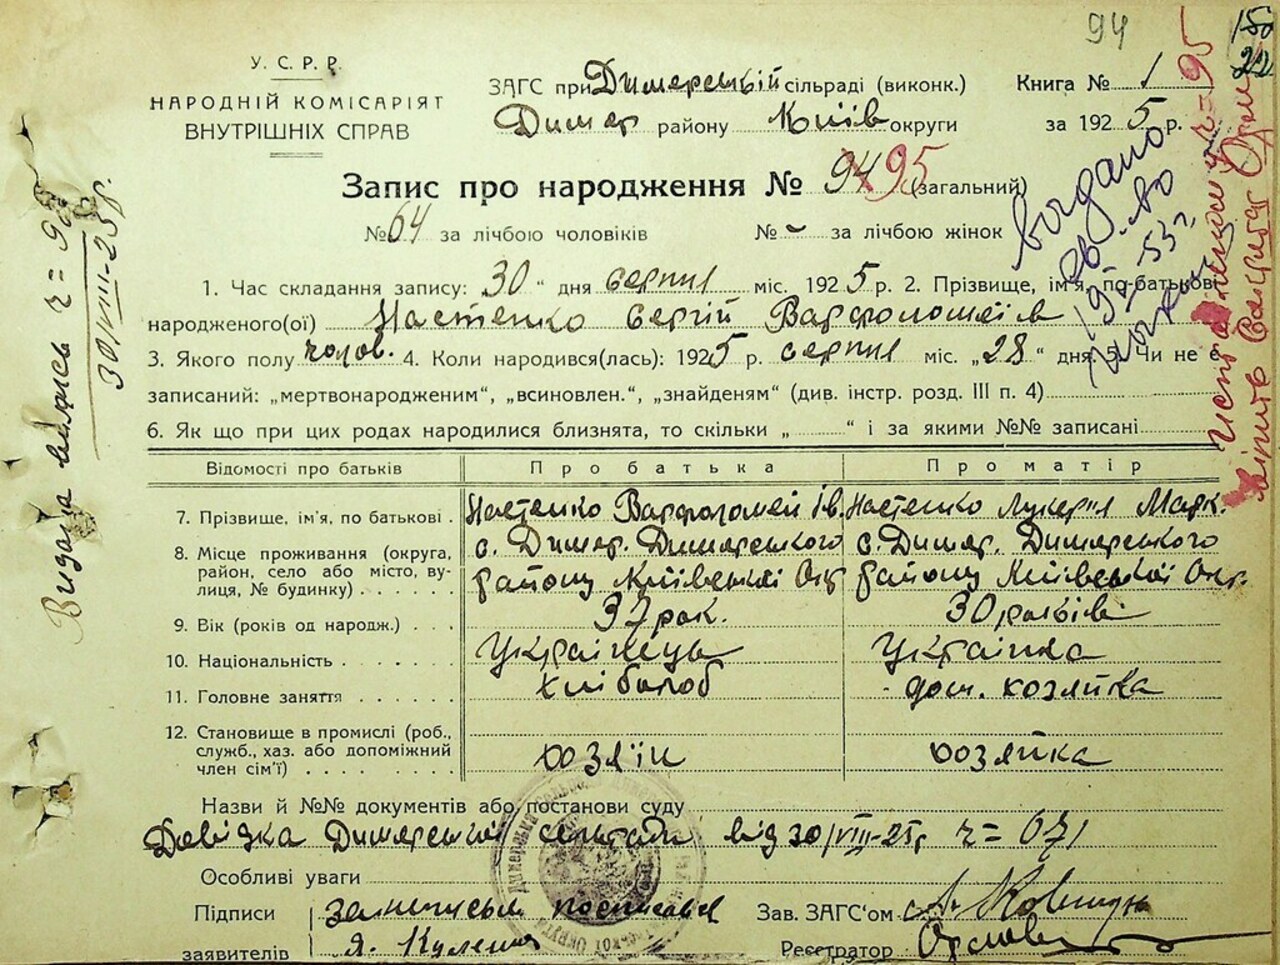 94
150
22
У. С. Р. Р.
НАРОДНІЙ КОМІСАРІЯТ
ВНУТРІШНІХ СПРАВ
ЗАГС при Димерській сільраді (виконк.)
Димер району Київ округи
Книга № 1
за 1925 р.
Запис про народження № 94 95 (загальний)
№ 64 за лічбою чоловіків № - за лічбою жінок
1. Час складання запису: „30“ дня серпня міс. 1925 р. 2. Прізвище, ім'я, по-батькові
народженого(ої) Настенко Сергій Варфоломеїв
3. Якого полу чолов. 4. Коли народився(лась): 1925 р. серпня міс. „28“ дня 5. Чи не є
записаний: „мертвонародженим“, „всиновлен.“, „знайденям“ (див. інстр. розд. III п. 4)
6. Як що при цих родах народилися близнята, то скільки „ “ і за якими №№ записані
Відомості про батьків Про батька Про матір
7. Прізвище, ім'я, по батькові . Настенко Варфоломей Ів. Настенко Лукерія Марк.
8. Місце проживання (округа, район, село або місто, вулиця, № будинку) с. Димер. Димерського с. Димер. Димерського
району Київської Окр району Київської Окр.
9. Вік (років од народж.) . . . 37 рок. 30 років
10. Національність Українець Українка
11. Головне заняття хлібороб дом. хозяйка
12. Становище в промислі (роб., служб., хаз. або допоміжний член сім'ї) хозяїн хозяйка
Назви й №№ документів або постанови суду
Довідка Димерської сельради від 30/VIII-25р ч= 071
Особливі уваги
Підписи заявителів
Я. Куленко
Зав. ЗАГС'ом
Реєстратор
Видана випись ч= 9
30/VIII-25 р.
видано
ч= 95